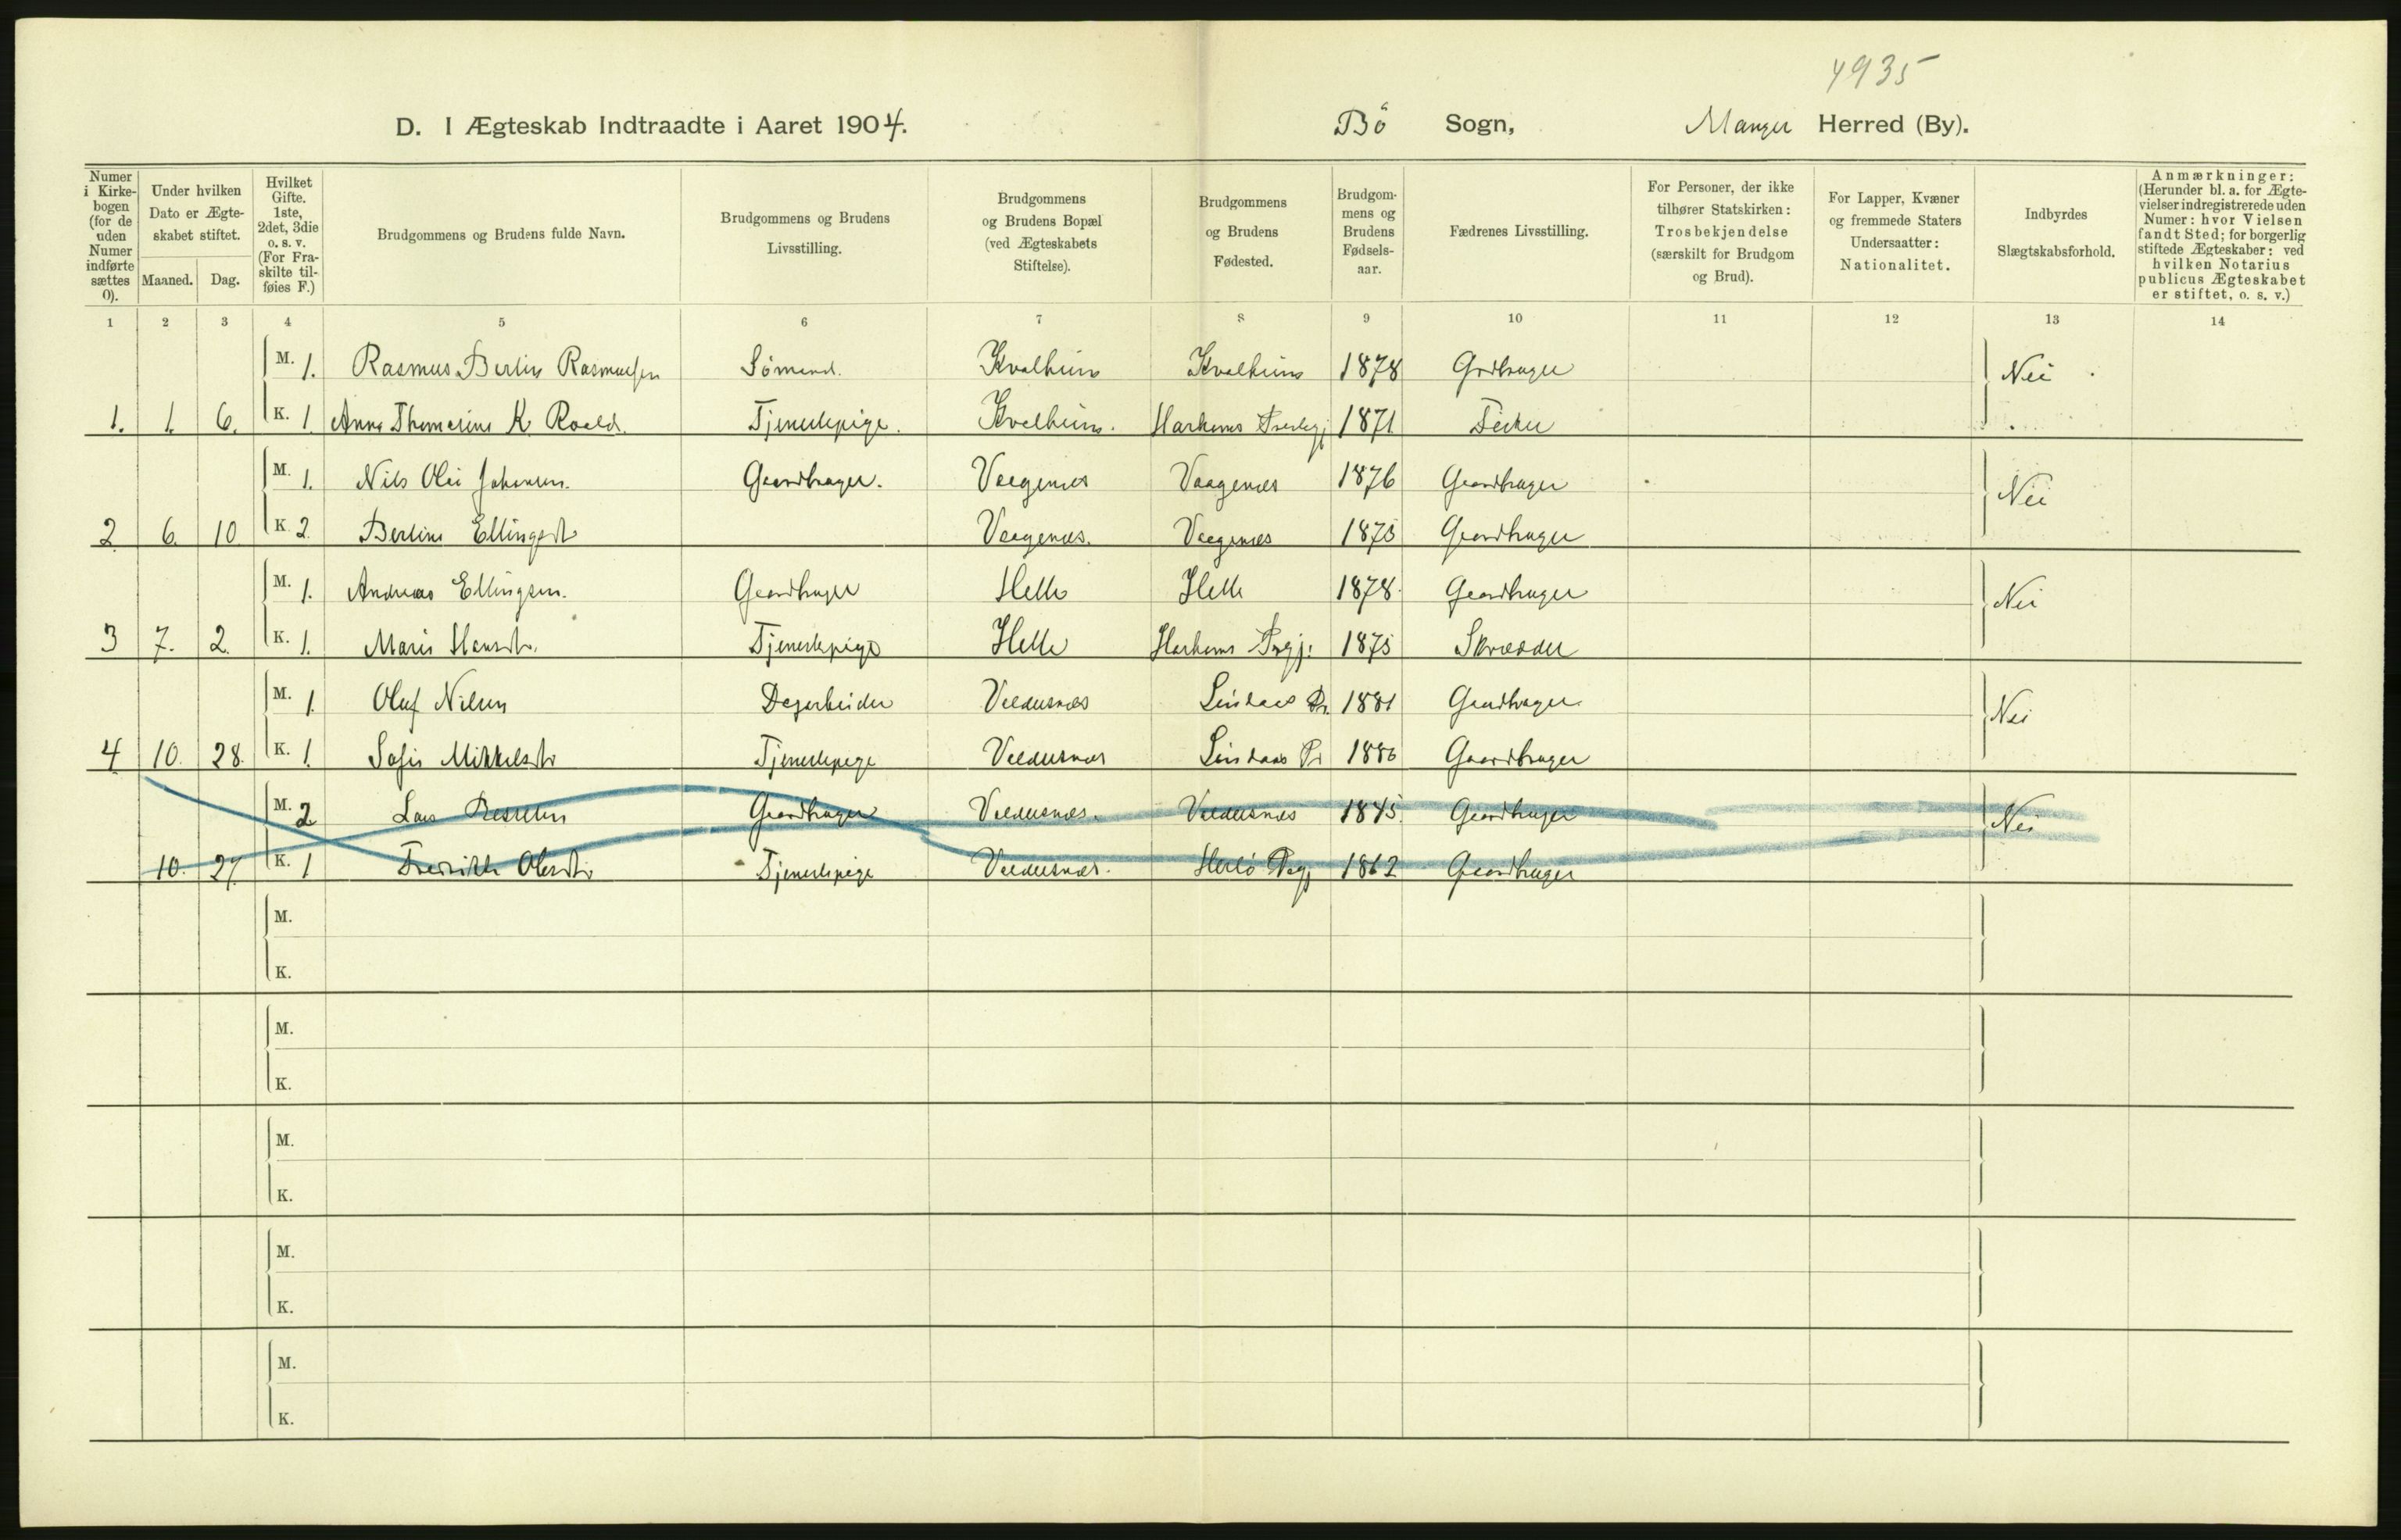 4935
D. I Ægteskab Indtraadte i Aaret 1904. Bö Sogn, Manger Herred (By).
Numer i Kirkebogen (for de uden Numer indførte sættes 0).
Under hvilken Dato er Ægteskabet stiftet.
Maaned. Dag.
Hvilket Gifte. 1ste, 2det, 3die o. s. v. (For Fraskilte tilføies F.)
Brudgommens og Brudens fulde Navn.
Brudgommens og Brudens Livsstilling.
Brudgommens og Brudens Bopæl (ved Ægteskabets Stiftelse).
Brudgommens og Brudens Fødested.
Brudgommens og Brudens Fødselsaar.
Fædrenes Livsstilling.
For Personer, der ikke tilhører Statskirken: Trosbekjendelse (særskilt for Brudgom og Brud).
For Lapper, Kvæner og fremmede Staters Undersaatter: Nationalitet.
Indbyrdes Slægtskabsforhold.
Anmærkninger: (Herunder bl. a. for Ægtevielser indregistrerede uden Numer: hvor Vielsen fandt Sted; for borgerlig stiftede Ægteskaber: ved hvilken Notarius publicus Ægteskabet er stiftet, o. s. v.)
1 2 3 4 5 6 7 8 9 10 11 12 13 14
M. 1. Rasmus Bertin Rasmussen Sömand. Kvalheim Kvalheim 1878 Grdbruger Nei
1. 1. 6. K. 1. Anna Thomasine K. Roald. Tjenestepige. Kvalheim. Harhams 1871 Fisker
M. 1. Nils Olai Johansen. Gaardbruger. Vaagenæs Vaagenæs 1876 Gaardbruger Nei
2 6. 10 K. 2. Bertine Ellingsdt Vaagenæs. Vaagenæs 1875 Gaardbruger
M. 1. Andreas Ellingsen. Gaardbruger Helle Helle 1878. Gaardbruger Nei
3 7. 2. K. 1. Marie Hansdt. Tjenestepige Helle Harhams Prgj: 1875 Skrædder
M. 1. Oluf Nilsen Dagarbeider Valdersnæs Lindaas Pr. 1881 Gaardbruger Nei
4 10. 28. K. 1. Sofie Mikkelsdt Tjenestepige Valdersnæs Lindaas Pr 1880 Gaardbruger
M. 2 Lars Gaardbruger Valdersnæs. Valdersnæs 1845. Gaardbruger Nei
10. 27. K. 1 Fredrikke Olsdt Tjenestepige Valdersnæs. Herlö Prgj 1862 Gaardbruger
M.
K.
M.
K.
M.
K.
M.
K.
M.
K.